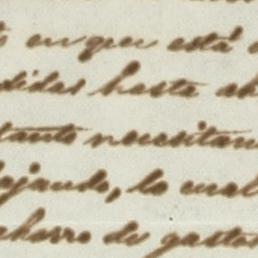 en que está
didas hasta ah
tanto necesitan
bajando, lo cual
ahorro de gastos